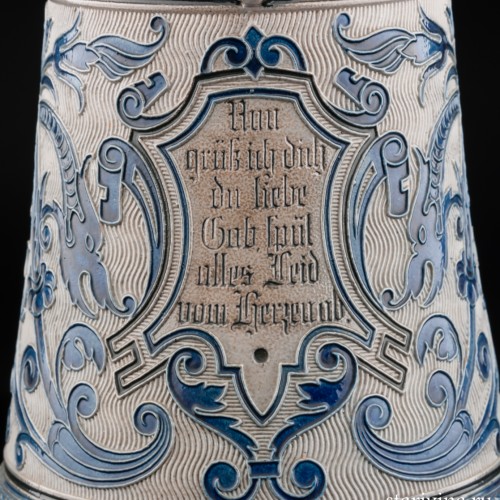 Nun
grüß ich dich
du liebe
Gab spül
alles Leid
vom Herzen ab.